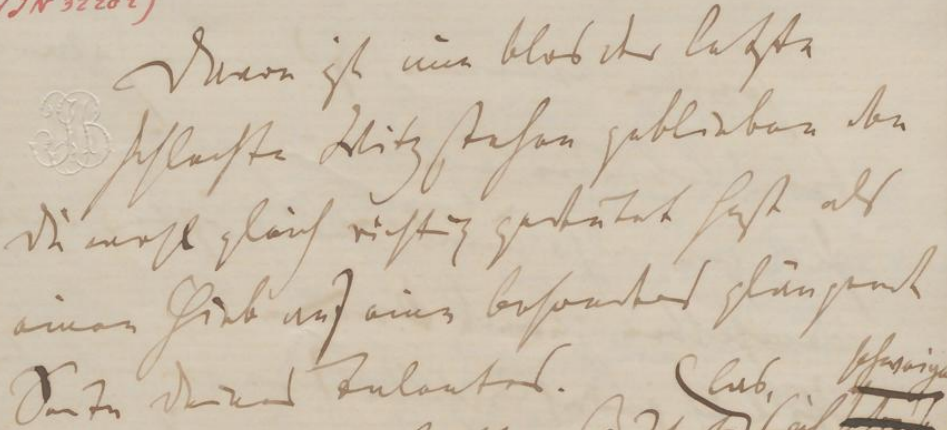 (JN 32202)
Davon ist nur blos der letzte
schlechte Witz stehen geblieben den
Du wohl gleich richtig gedeutet hast als
einen Hieb auf eine besonders glänzende
Seite Deines Talentes.